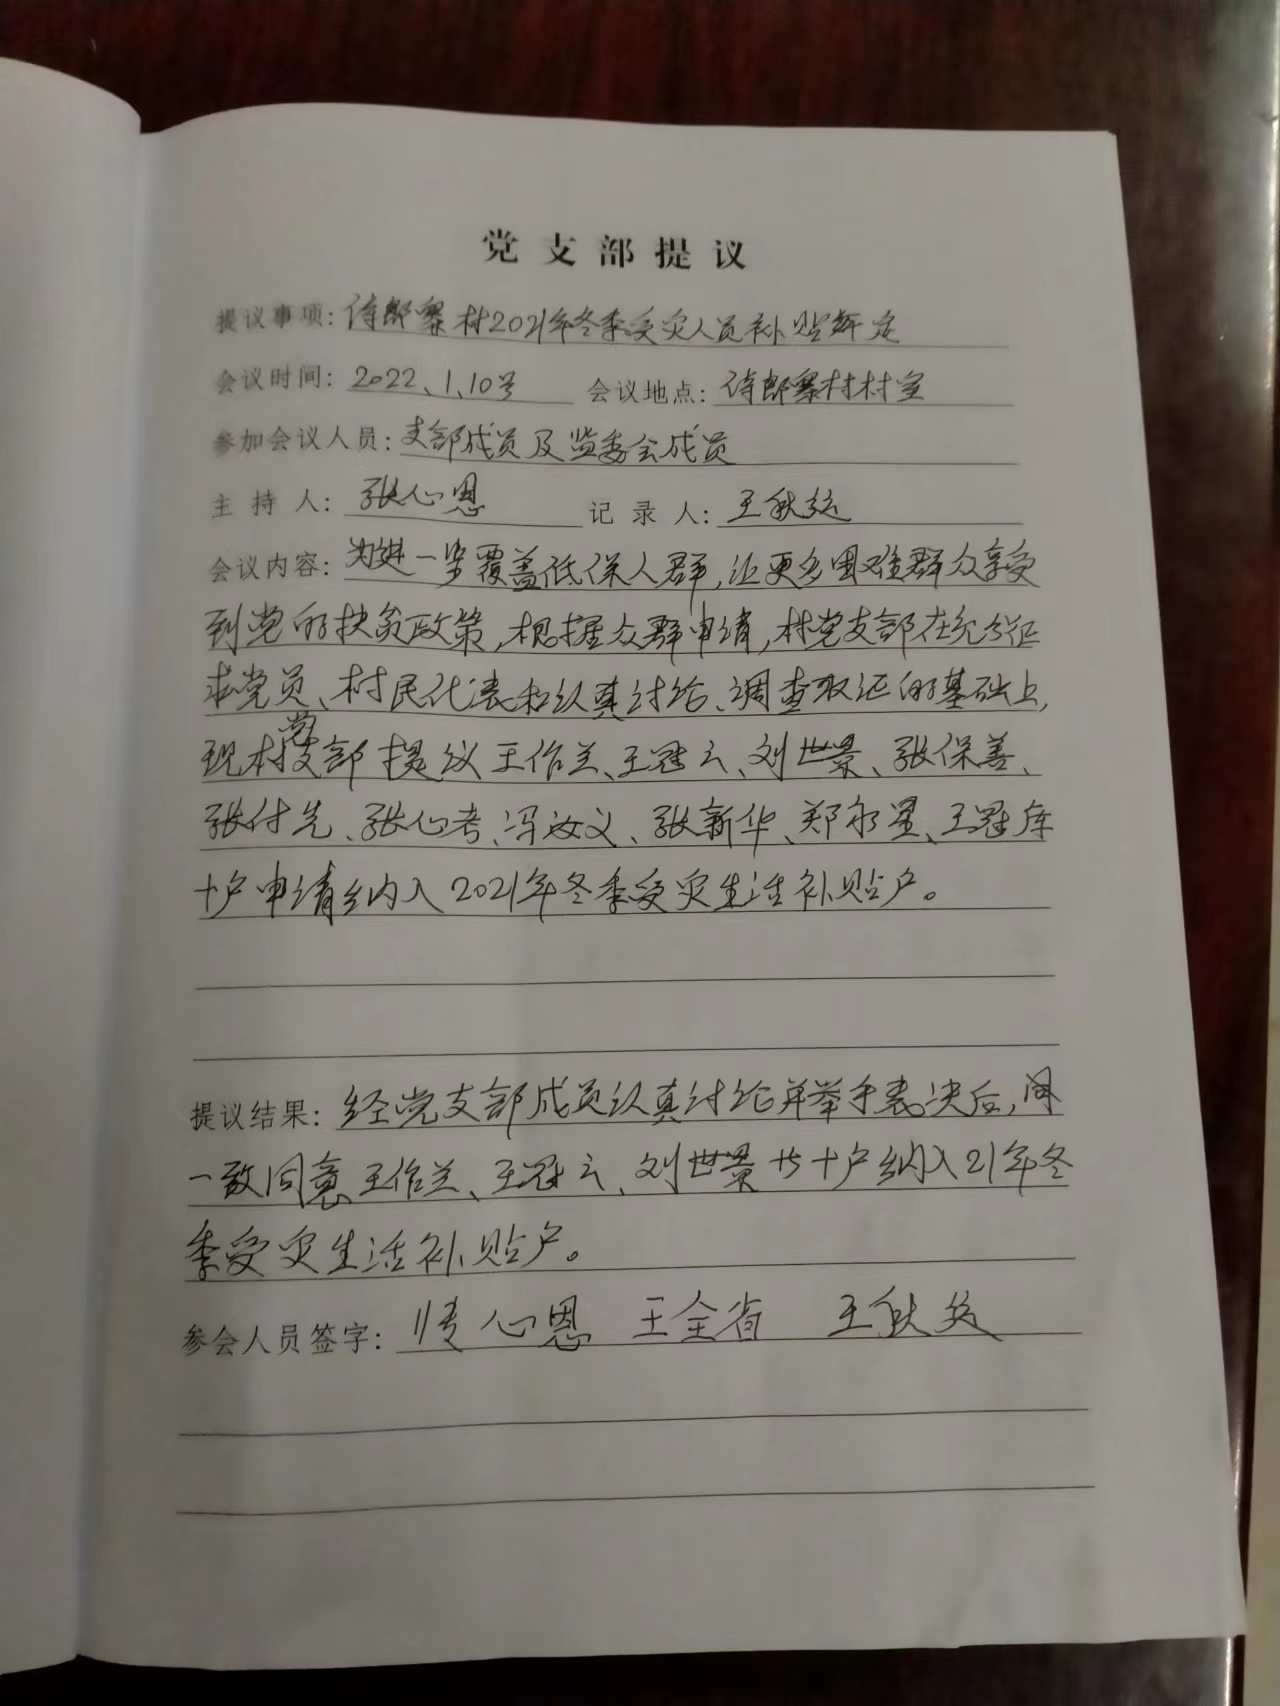 党支部提议
提议事项:侍郎寨村2021年冬季受灾人员补贴评定
会议时间:2022、1、10号 会议地点:侍郎寨村村室
参加会议人员:支部成员及监委会成员
主持人:张心恩 记录人:王秋
会议内容:为进一步覆盖低保人群,让更多困难群众享受
到党的扶贫政策,根据众群申请,村党支部在充分征
求党员、村民代表和认真讨论、调查取证的基础上,
现村党支部提议王作兰、王冠云、刘世景、张保善、
张付先、张心考、冯汝义、张新华、郑永星、王冠库
十户申请纳入2021年冬季受灾生活补贴户。
提议结果:经党支部成员认真讨论并举手表决后,
一致同意王作兰、王冠云、刘世景等十户纳入21年冬
季受灾生活补贴户。
参会人员签字:张心恩 王全省 王秋